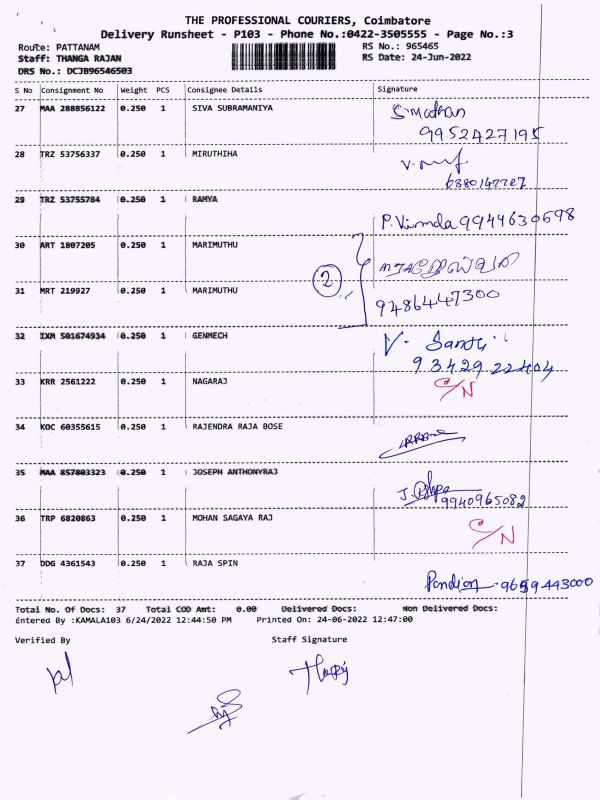 THE PROFESSIONAL COURIERS, Coimbatore
Delivery Runsheet - P103 - Phone No.:0422-3505555 - Page No.:3
Route: PATTANAM RS No.: 965465
Staff: THANGA RAJAN RS Date: 24-Jun-2022
DRS No.: DCJB96546503
S No Consignment No Weight PCS Consignee Details Signature
27 MAA 288856122 0.250 1 SIVA SUBRAMANIYA S. Madhan
9952427195
28 TRZ 53756337 0.250 1 MIRUTHIHA
29 TRZ 53755784 0.250 1 RAMYA
P. Virmda 9944630598
30 ART 1807205 0.250 1 MARIMUTHU
2
31 MRT 219927 0.250 1 MARIMUTHU 9486447300
32 IXM 501674934 0.250 1 GENMECH V.
9342922404
33 KRR 2561222 0.250 1 NAGARAJ C/N
34 KOC 60355615 0.250 1 RAJENDRA RAJA BOSE
35 MAA 857803323 0.250 1 JOSEPH ANTHONYRAJ
J. 9940965082
36 TRP 6820863 0.250 1 MOHAN SAGAYA RAJ C/N
37 DDG 4361543 0.250 1 RAJA SPIN
Pandian 9659443000
Total No. Of Docs: 37 Total COD Amt: 0.00 Delivered Docs: Non Delivered Docs:
Entered By :KAMALA103 6/24/2022 12:44:50 PM Printed On: 24-06-2022 12:47:00
Verified By Staff Signature